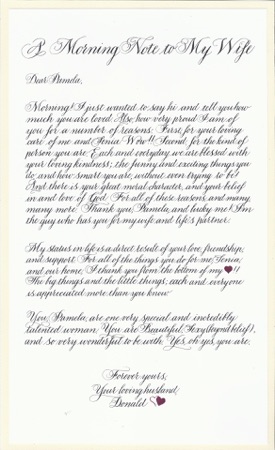 A Morning Note to My Wife
Dear Pamela,
Morning! I just wanted to say hi and tell you how
much you are loved. Also, how very proud I am of
you for a number of reasons. First, for your loving
care of me and Tonia. Wow!! Second, for the kind of
person you are. Each and everyday, we are blessed with
your loving kindness; the funny and exciting things you
do; and how smart you are, without even trying to be!
And there is your great moral character, and your belief
in and love of God. For all of these reasons, and many,
many more. Thank you, Pamela, and lucky me! I'm
the guy who has you for my wife and life's partner.
My status in life is a direct result of your love, friendship,
and support. For all of the things you do for me, Tonia,
and our home, I thank you from the bottom of my ❤!!
The big things and the little things; each and everyone
is appreciated more than you know.
You, Pamela, are one very special and incredibly
talented woman. You are Beautiful, Sexy (beyond belief),
and so very wonderful to be with. Yes, oh yes, you are.
Forever yours,
Your loving husband,
Donald ❤